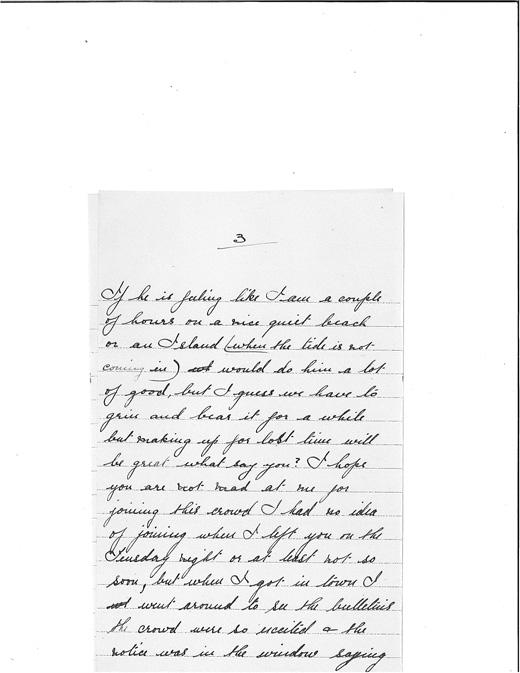 3
If he is feeling like I am a couple
of hours on a nice quiet beach
or an Island (when the tide is not
coming in) would do him a lot
of good, but I guess we have to
grin and bear it for a while
but making up for lost time will
be great what say you? I hope
you are not mad at me for
joining this crowd I had no idea
of joining when I left you on the
Tuesday night or at least not so
soon, but when I got in town I
went around to see the bulletins
the crowd were so excited & the
notice was in the window saying